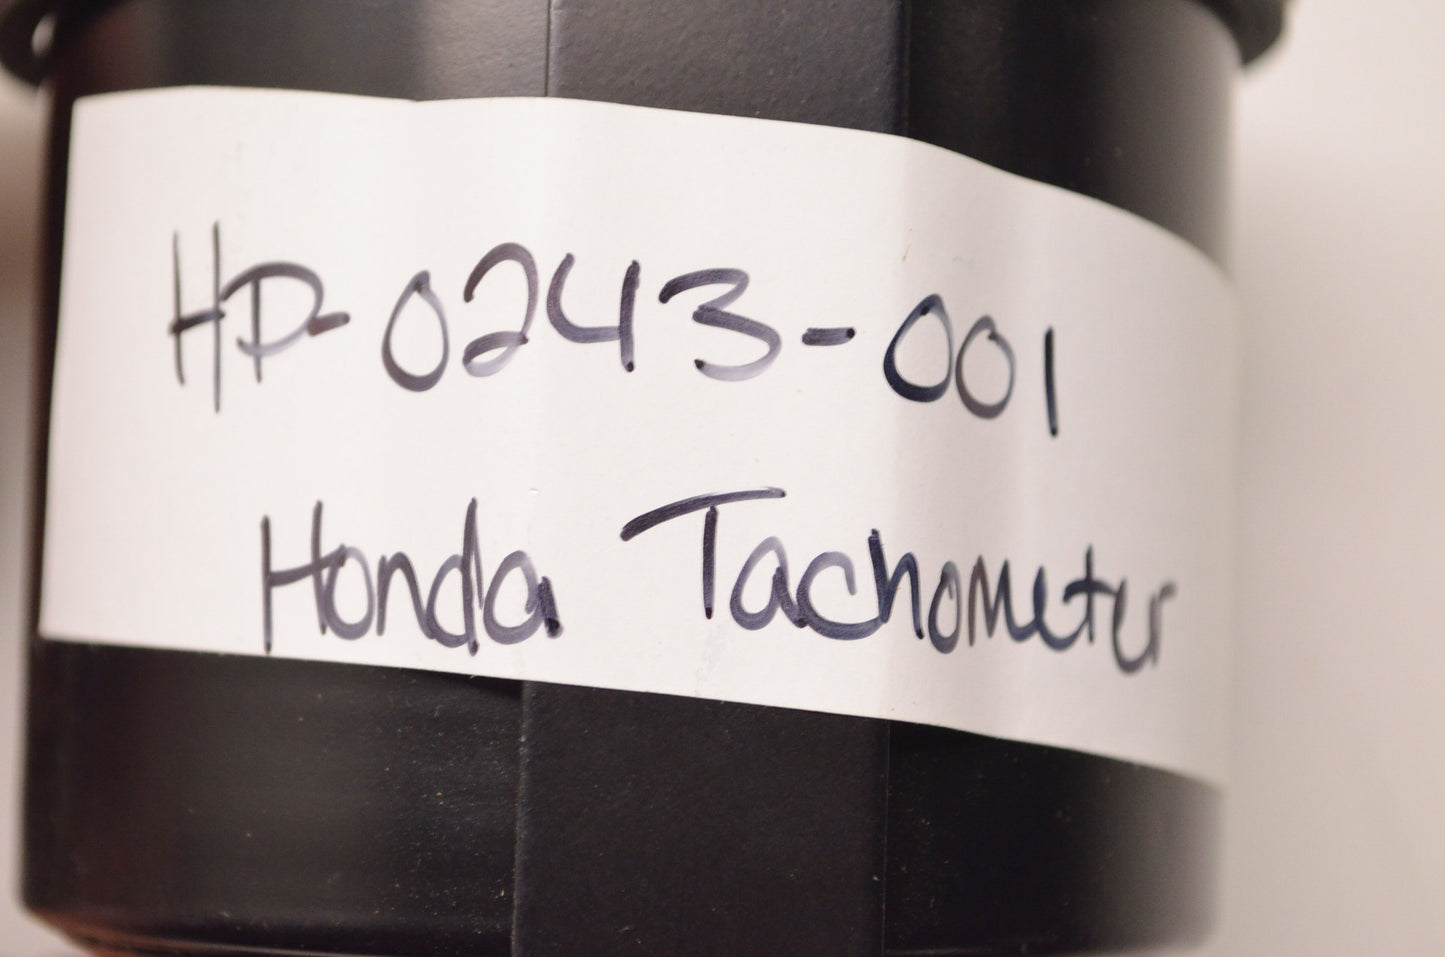 HP-0243-001
Honda Tachometer